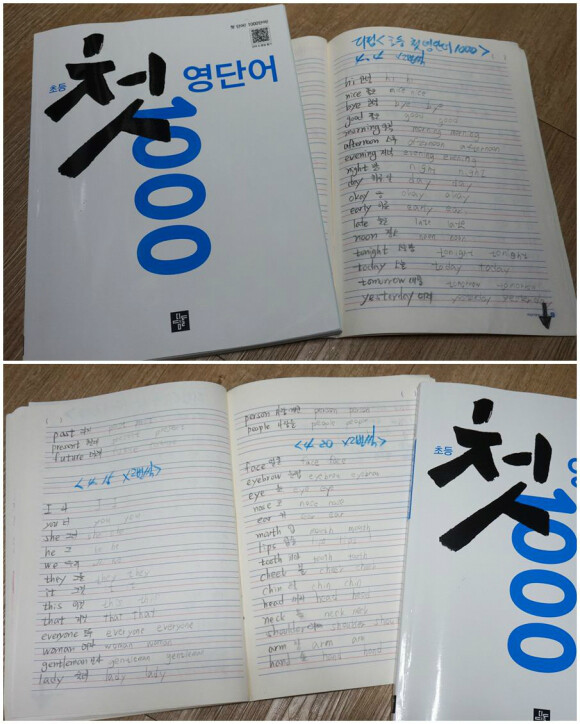 초등
첫
영단어
1000
디딤<초등 첫 영단어 1000>
hi 안녕 hi hi
nice 좋은 nice nice
bye 안녕 bye bye
good 좋은 good good
morning 아침 morning morning
afternoon 오후 afternoon afternoon
evening 저녁 evening evening
night 밤 night night
day day day
okay okay okay
early early
late 늦은 late late
noon 정오 noon noon
tonight 오늘밤 tonight tonight
today 오늘 today today
tomorrow 내일 tomorrow tomorrow
yesterday 어제 yesterday yesterday
past 과거 past past
present 현재 present present
future 미래 future
I 나 I I
you 너 you you
she 그녀 she she
he 그 he he
we 우리 we we
they they they
it 그것 it it
this 이것 this this
that 저것 That That
everyone 모두 everyone everyone
woman 여자 woman woman
gentleman gentleman gentleman
lady 숙녀 lady lady
person person person
people 사람들 people people
face 얼굴 face face
eyebrow 눈썹 eyebrow eyebrow
eye 눈 eye eye
nose 코 nose nose
ear 귀 ear ear
mouth 입 mouth mouth
lips 입술 lips lips
teeth teeth teeth
cheek 볼 cheek cheek
chin 턱 chin chin
head 머리 head head
neck 목 neck neck
shoulder shoulder shoulder
arm 팔 arm arm
hand 손 hand hand
초등
첫
1000